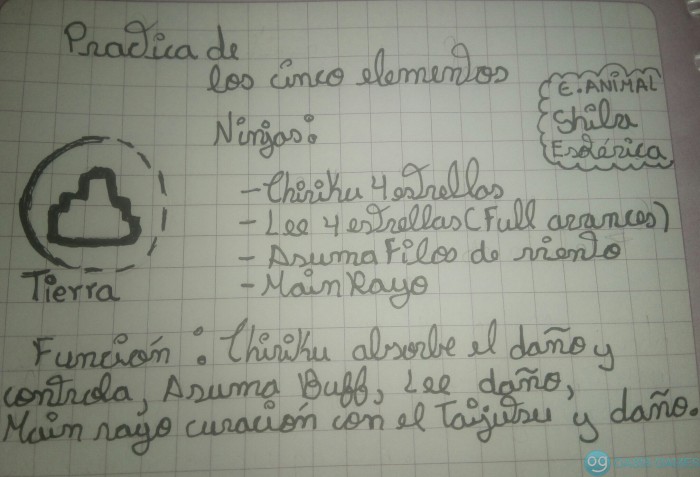 Practica de
los cinco elementos
E. ANIMAL
Shilu
Esdérica
Ningas:
- Chiriku 4 estrellas
- Lee 4 estrellas (Full avances)
- Asuma Filos de viento
- Main Rayo
Tierra
Función: Chiriku absorbe el daño y
controla, Asuma Buff, Lee daño,
Main rayo curación con el Taijutsu y daño.
og